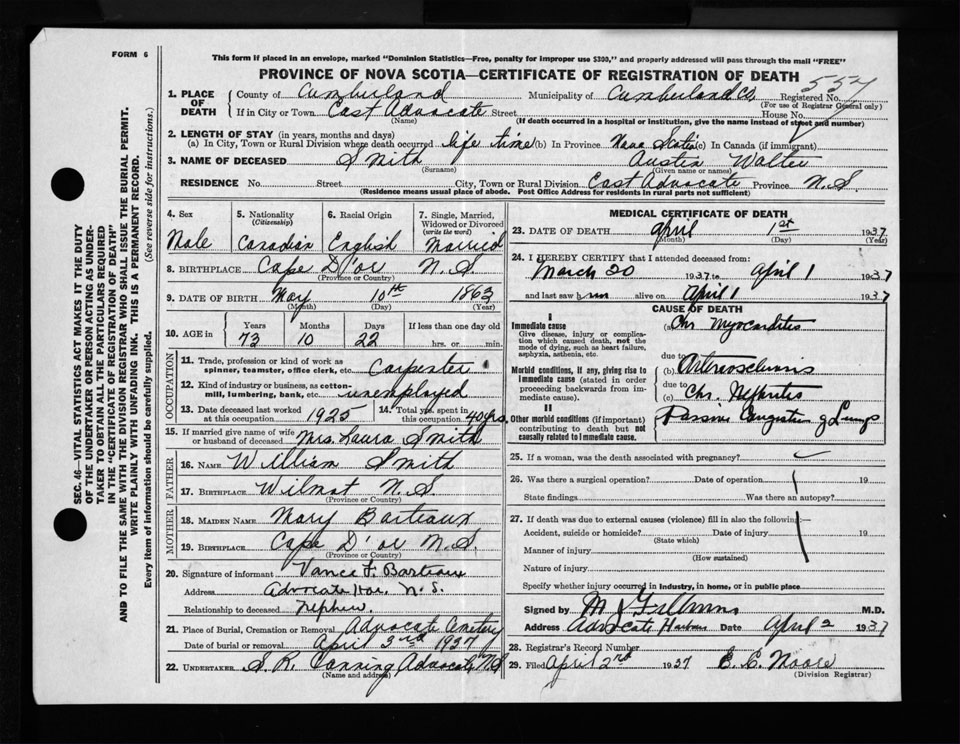 FORM 6
This form if placed in an envelope, marked "Dominion Statistics—Free, penalty for improper use $300," and properly addressed will pass through the mail "FREE"
PROVINCE OF NOVA SCOTIA—CERTIFICATE OF REGISTRATION OF DEATH
557
1. PLACE OF DEATH
County of Cumberland Municipality of Cumberland Co. Registered No.
(For use of Registrar General only)
If in City or Town East Advocate Street House No.
(Name) (If death occurred in a hospital or institution, give the name instead of street and number)
2. LENGTH OF STAY (in years, months and days)
(a) In City, Town or Rural Division where death occurred life time (b) In Province Nova Scotia (c) In Canada (if immigrant)
3. NAME OF DECEASED Smith Austin Walter
(Surname) (Given name or names)
RESIDENCE No. Street City, Town or Rural Division East Advocate Province N.S.
(Residence means usual place of abode. Post Office Address for residents in rural parts not sufficient)
4. Sex 5. Nationality (Citizenship) 6. Racial Origin 7. Single, Married, Widowed or Divorced (write the word)
Male Canadian English Married
8. BIRTHPLACE Cape D'or N.S.
(Province or Country)
9. DATE OF BIRTH May 10th 1863
(Month) (Day) (Year)
10. AGE in Years Months Days If less than one day old
73 10 22 hrs. or min.
OCCUPATION
11. Trade, profession or kind of work as spinner, teamster, office clerk, etc. Carpenter
12. Kind of industry or business, as cotton-mill, lumbering, bank, etc. unemployed
13. Date deceased last worked at this occupation 1925 14. Total yrs. spent in this occupation 40 yrs.
15. If married give name of wife or husband of deceased Mrs. Laura Smith
FATHER
16. NAME William Smith
17. BIRTHPLACE Wilmot N.S.
(Province or Country)
MOTHER
18. MAIDEN NAME Mary Barteaux
19. BIRTHPLACE Cape D'or N.S.
(Province or Country)
20. Signature of informant Vance F. Barteaux
Address Advocate Har. N.S.
Relationship to deceased nephew.
21. Place of Burial, Cremation or Removal Advocate Cemetery
Date of burial or removal April 3rd 1937
22. UNDERTAKER S. R. Canning Advocate N.S
(Name and address)
MEDICAL CERTIFICATE OF DEATH
23. DATE OF DEATH April 1st 1937
(Month) (Day) (Year)
24. I HEREBY CERTIFY that I attended deceased from:
March 30 1937 to April 1 1937
and last saw him alive on April 1 1937
CAUSE OF DEATH
I
Immediate cause
Give disease, injury or complication which caused death, not the mode of dying, such as heart failure, asphyxia, asthenia, etc.
(a) Chr. Myocarditis
due to
Morbid conditions, if any, giving rise to immediate cause (stated in order proceeding backwards from immediate cause).
(b) Arteriosclerosis
due to
(c) Chr. Nephritis
II
Other morbid conditions (if important) contributing to death but not causally related to immediate cause.
Passive Congestion of Lungs
25. If a woman, was the death associated with pregnancy?
26. Was there a surgical operation? Date of operation 19
State findings Was there an autopsy?
27. If death was due to external causes (violence) fill in also the following:—
Accident, suicide or homicide? Date of injury 19
(State which)
Manner of injury
(How sustained)
Nature of injury
Specify whether injury occurred in industry, in home, or in public place
Signed by M.D.
Address Advocate Harbour Date April 2 1937
28. Registrar's Record Number
29. Filed April 2nd 1937 E. C. Moore
(Division Registrar)
SEC. 46—VITAL STATISTICS ACT MAKES IT THE DUTY
OF THE UNDERTAKER OR PERSON ACTING AS UNDER-
TAKER TO OBTAIN ALL THE PARTICULARS REQUIRED
IN THE "CERTIFICATE OF REGISTRATION OF DEATH"
AND TO FILE THE SAME WITH THE DIVISION REGISTRAR WHO SHALL ISSUE THE BURIAL PERMIT.
WRITE PLAINLY WITH UNFADING INK. THIS IS A PERMANENT RECORD.
Every item of information should be carefully supplied. (See reverse side for instructions.)